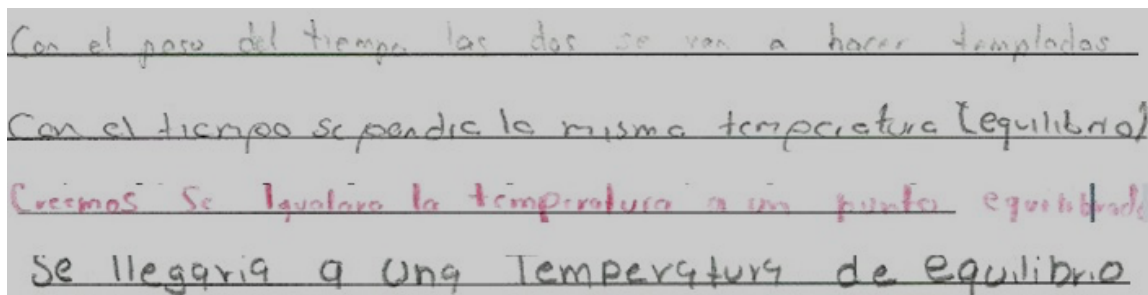 Con el paso del tiempo las dos se van a hacer templadas
Con el tiempo se pondria la misma temperatura (equilibrio)
Creemos se Igualara la temperatura a un punto equilibrado
Se llegaria a una Temperatura de equilibrio